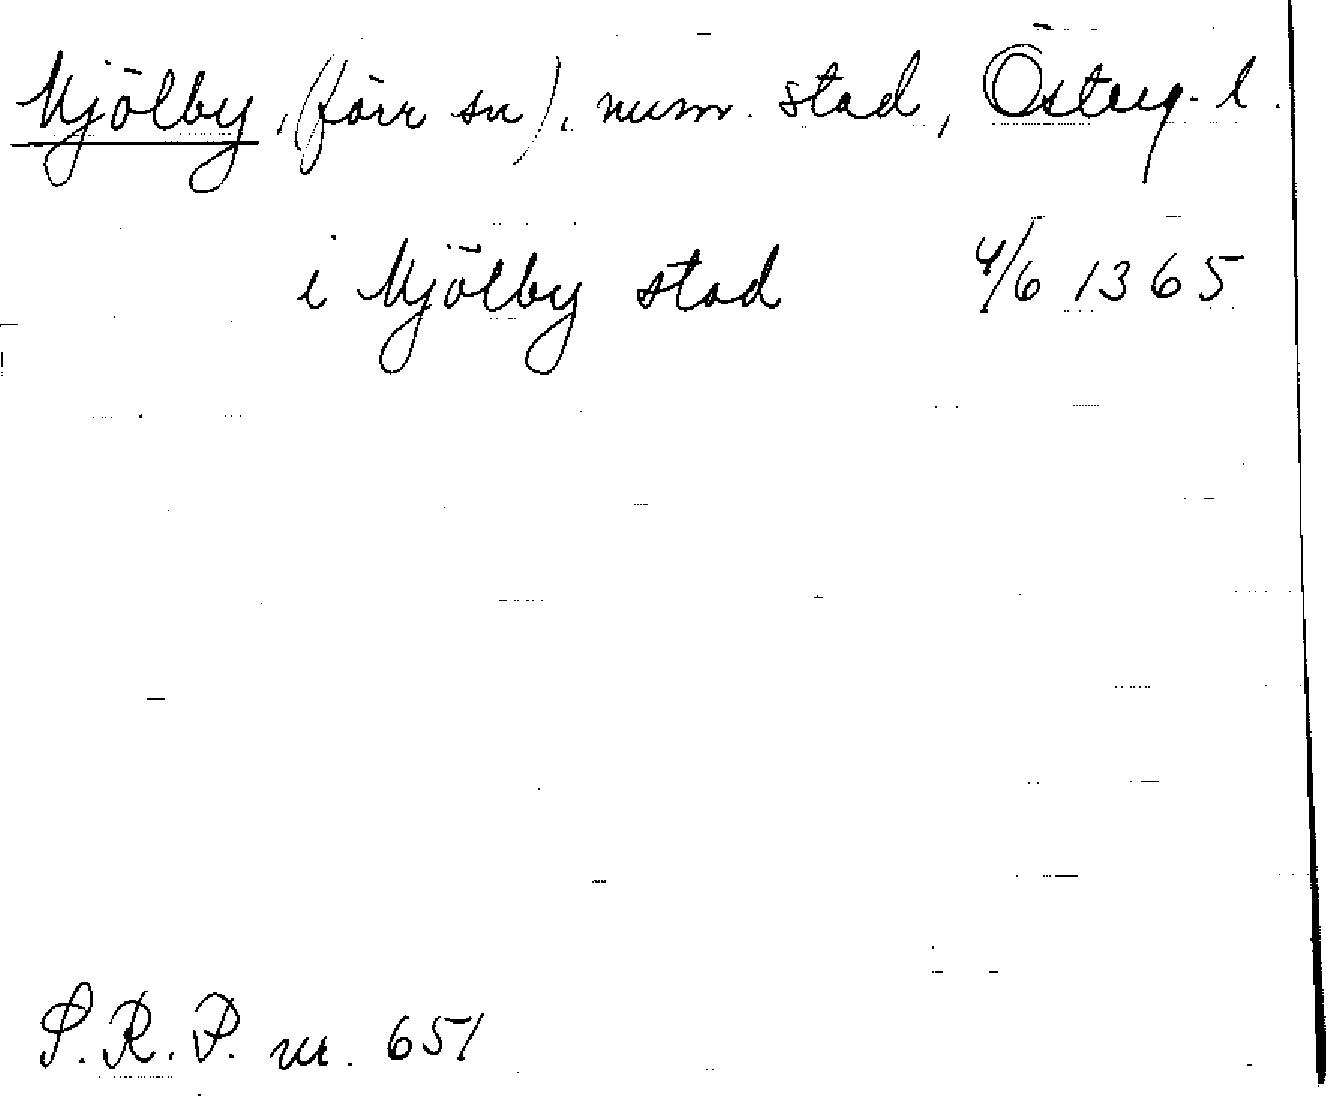 Mjölby, (förr sn), num. stad, Österg. l.
i Mjölby stad 4/6 1365
S.R.P. nr. 651